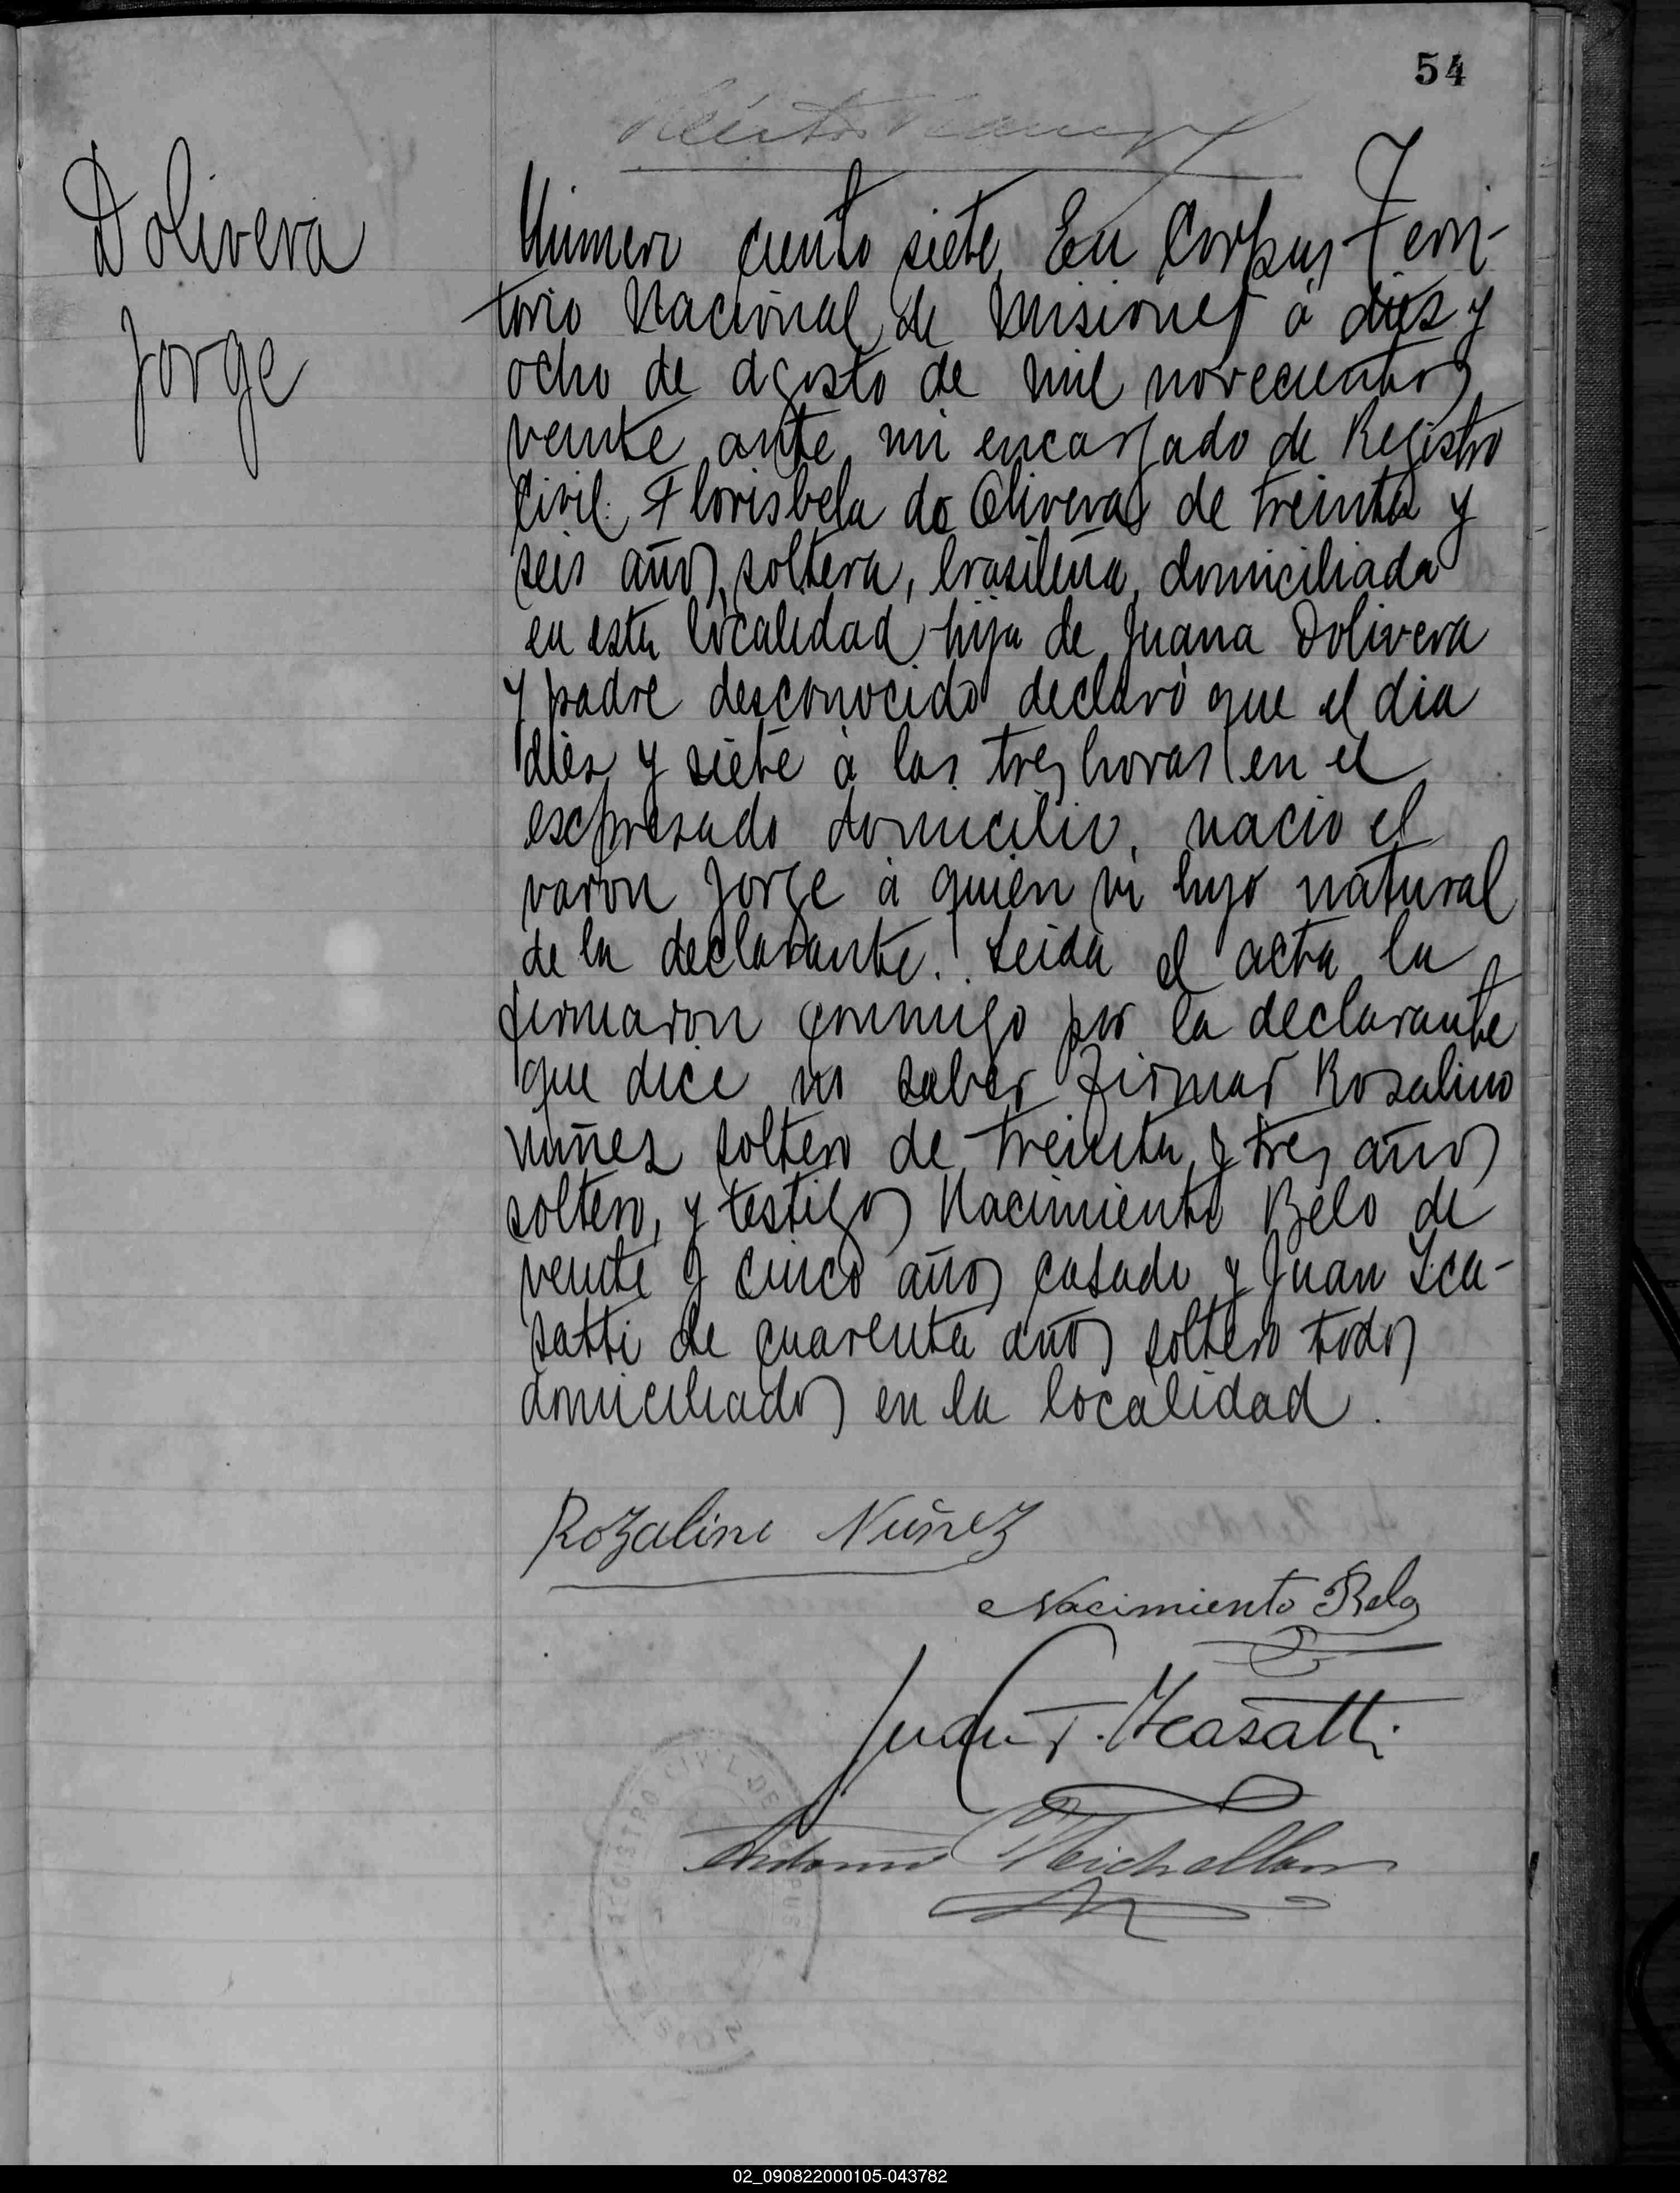 54
Dolivera
Jorge
Numero ciento siete. En Corpus Terri-
torio Nacional de Misiones á dies y
ocho de agosto de mil novecientos
veinte ante mi encargado de Registro
Civil: Florisbela de Olivera de treinta y
seis años, soltera, brasileña, domiciliada
en esta localidad hija de Juana Dolivera
y padre desconocido declaró que el dia
dies y siete á las tres horas en el
escpresado domicilio, nacio el
varon Jorge á quien vi hijo natural
de la declarante. Leida el acta la
firmaron conmigo por la declarante
que dice no saber firmar Rosalino
Nuñez soltero de treinta y tres años
soltero, y testigos Nacimiento Belo de
veinte y cinco años casado y Juan Sca-
satti de cuarenta años soltero todos
domiciliados en la localidad.
Rozalino Nuñez
Nacimiento Belo
Juan T. Scasatti
Antonio
REGISTRO CIVIL DE CORPUS
02_090822000105-043782